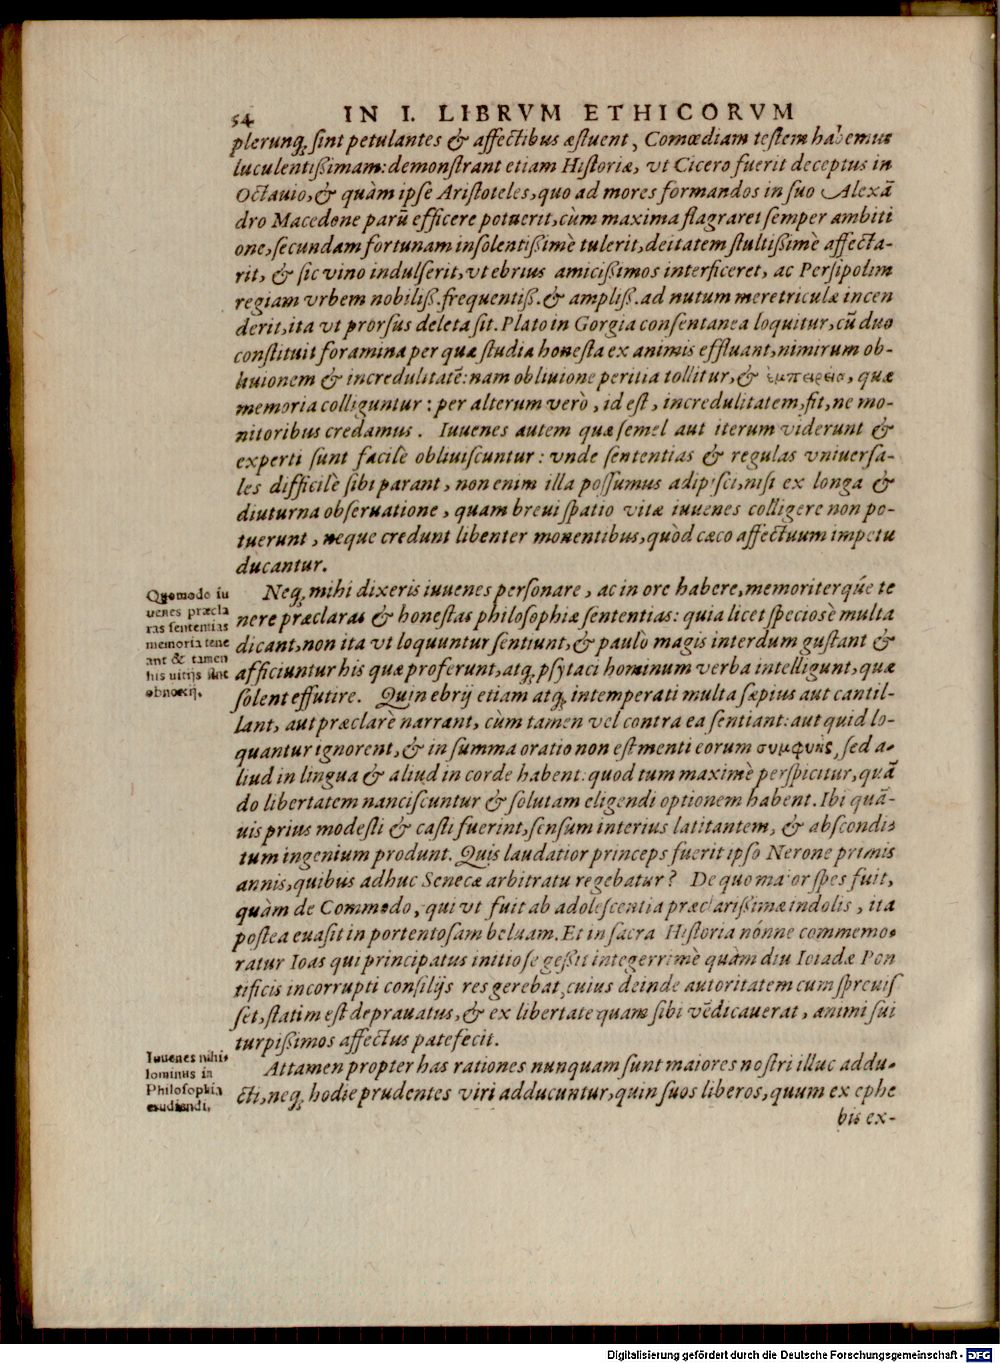 54 IN I. LIBRVM ETHICORVM
plerunq; sint petulantes & affectibus æstuent, Comœdiam testem habemus
luculentißimam: demonstrant etiam Historiæ, vt Cicero fuerit deceptus in
Octauio, & quàm ipse Aristoteles, quo ad mores formandos in suo Alexã
dro Macedone parũ efficere potuerit, cùm maxima flagraret semper ambiti
one, secundam fortunam insolentißimè tulerit, deitatem stultißimè affecta-
rit, & sic vino indulserit, vt ebrius amicißimos interficeret, ac Persipolim
regiam vrbem nobiliß. frequentiß. & ampliß. ad nutum meretriculæ incen
derit, ita vt prorsus deleta sit. Plato in Gorgia consentanea loquitur, cũ duo
constituit foramina per quæ studia honesta ex animis effluant, nimirum ob-
liuionem & incredulitatẽ: nam obliuione peritia tollitur, & ἐμπειρία, quæ
memoria colliguntur: per alterum verò, id est, incredulitatem, fit, ne mo-
nitoribus credamus. Iuuenes autem quæ semel aut iterum viderunt &
experti sunt facilè obliuiscuntur: vnde sententias & regulas vniuersa-
les difficilè sibi parant, non enim illa possumus adipisci, nisi ex longa &
diuturna obseruatione, quam breui spatio vitæ iuuenes colligere non po-
tuerunt, neque credunt libenter monentibus, quòd cæco affectuum impetu
ducantur.
Quomodo iu
uenes præcla
ras sententias
memoria tene
ant & tamen
his uitijs sint
obnoxij.
Neq; mihi dixeris iuuenes personare, ac in ore habere, memoriterq́ue te
nere præclaras & honestas philosophiæ sententias: quia licet speciosè multa
dicant, non ita vt loquuntur sentiunt, & paulò magis interdum gustant &
afficiuntur his quæ proferunt, atq; psytaci hominum verba intelligunt, quæ
solent effutire. Quin ebrij etiam atq; intemperati multa sæpius aut cantil-
lant, aut præclarè narrant, cùm tamen vel contra ea sentiant: aut quid lo-
quantur ignorent, & in summa oratio non est menti eorum συμφυὴς, sed a-
liud in lingua & aliud in corde habent: quod tum maximè perspicitur, quã
do libertatem nanciscuntur & solutam eligendi optionem habent. Ibi quã-
uis prius modesti & casti fuerint, sensum interius latitantem, & abscondi-
tum ingenium produnt. Quis laudatior princeps fuerit ipso Nerone primis
annis, quibus adhuc Senecæ arbitratu regebatur? De quo maior spes fuit,
quàm de Commodo, qui vt fuit ab adolescentia præclarißimæ indolis, ita
postea euasit in portentosam beluam. Et in sacra Historia nónne commemo-
ratur Ioas qui principatus initio se geßit integerrimè quàm diu Ioiadæ Pon
tificis incorrupti consilijs res gerebat, cuius deinde autoritatem cum spreuis
set, statim est deprauatus, & ex libertate quam sibi vẽdicauerat, animi sui
turpißimos affectus patefecit.
Iuuenes nihi-
lominus in
Philosophia
erudiendi.
Attamen propter has rationes nunquam sunt maiores nostri illuc addu-
cti, neq; hodie prudentes viri adducuntur, quin suos liberos, quum ex ephe
bis ex-
Digitalisierung gefördert durch die Deutsche Forschungsgemeinschaft - DFG